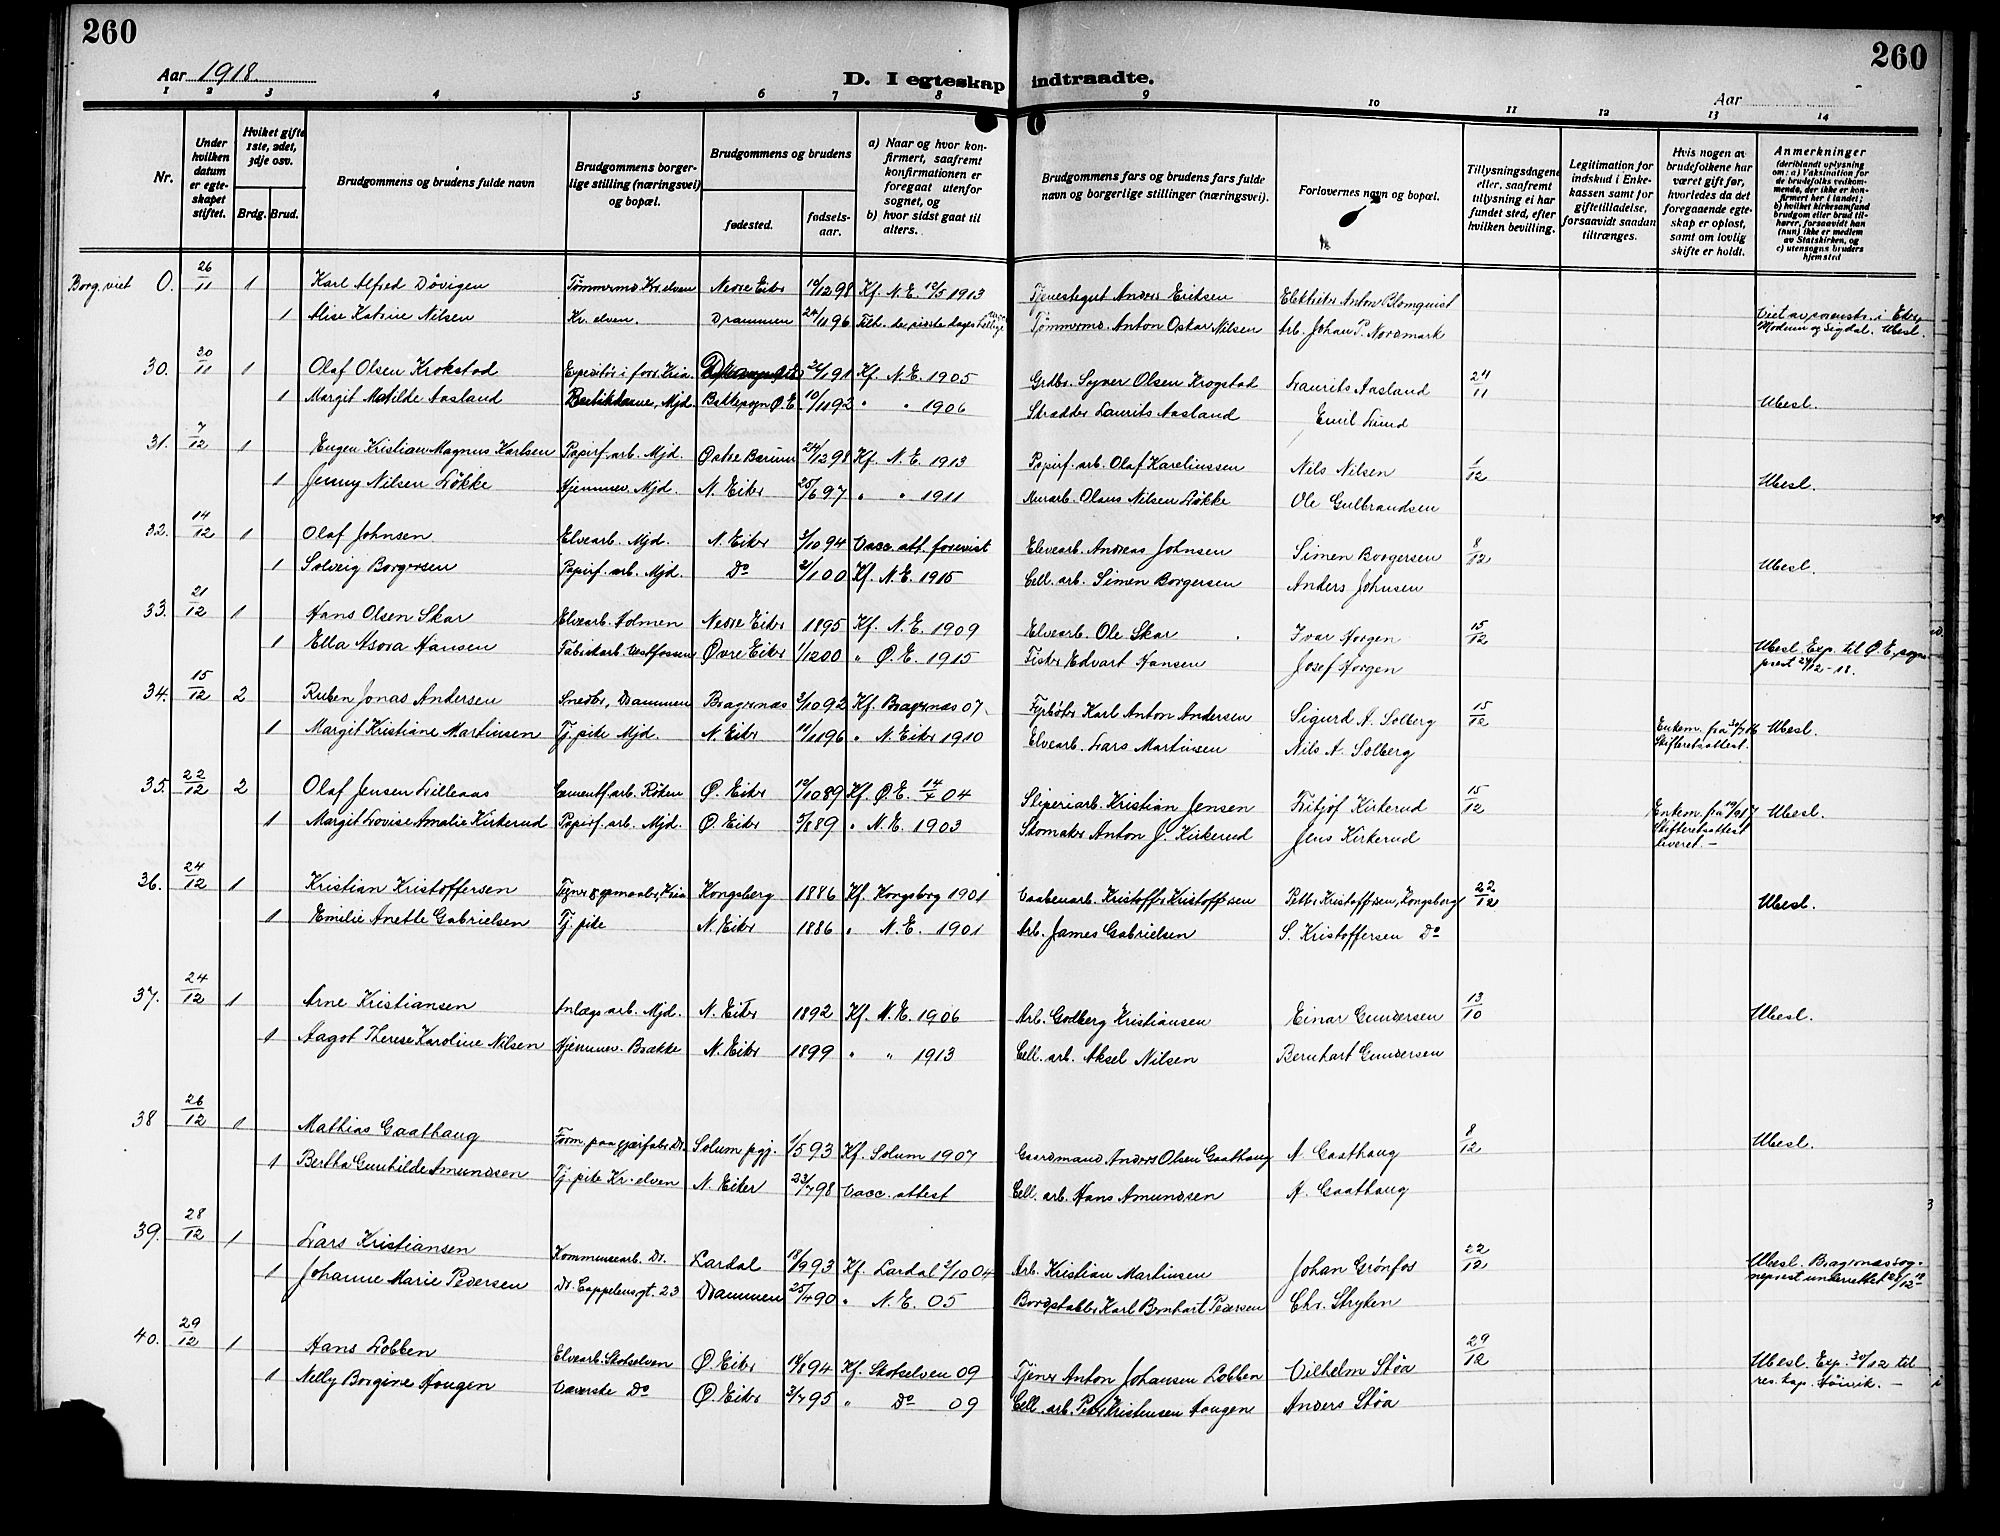 260
260
Aar 1918.
D. I egteskap indtraadte.
Aar
1 2 3 4 5 6 7 8 9 10 11 12 13 14
Nr.
Under hvilken datum er egteskapet stiftet.
Hvilket gifte 1ste, 2det, 3dje osv.
Brdg. Brud.
Brudgommens og brudens fulde navn
Brudgommens borgerlige stilling (næringsvei) og bopæl.
Brudgommens og brudens
fødested.
fødselsaar.
a) Naar og hvor konfirmert, saafremt konfirmationen er foregaat utenfor sognet, og
b) hvor sidst gaat til alters.
Brudgommens fars og brudens fars fulde navn og borgerlige stillinger (næringsvei).
Forlovernes navn og bopæl.
Tillysningsdagene eller, saafremt tillysning ei har fundet sted, efter hvilken bevilling.
Legitimation for indskud i Enkekassen samt for giftetilladelse, forsaavidt saadan tiltrænges.
Hvis nogen av brudefolkene har været gift før, hvorledes da det foregaaende egteskap er opløst, samt om lovlig skifte er holdt.
Anmerkninger (deriblandt oplysning om: a) Vaksination for de brudefolks vedkommende, der ikke er konfirmert her i landet; b) hvilket kirkesamfund brudgom eller brud tilhører, forsaavidt han (hun) ikke er medlem av Statskirken, og c) utensogns bruders hjemsted
Borg. viet 0. 26/11 1 Karl Alfred Døvigen Tømmermd Kr. elven Nedre Eiker 10/12 98 Kf. N. E. 12/5 1913 Tjenestegut Anders Eriksen Elektriker Anton Blomqvist
1 Alise Katrine Nilsen Kr. elven. Drammen 24/11 96 Tilh. de sidste dages hellige Tømmermd. Anton Oskar Nilsen Arb. Johan P. Nordmark Viet av sorenskr. i Eker, Modum og Sigdal. Ubesl.
30. 30/11 1 Olaf Olsen Krokstad Expeditør i forr. Kria 26/1 91 Kf. N. E. 1905 Grdbr. Syver Olsen Krogstad Laurits Aasland 24/11
1 Margit Matilde Aasland Butikdame, Mjd. Bakkesogn Ø. E. 10/11 92 " " 1906 Skrædder Laurits Aasland Emil Lund Ubesl.
31. 7/12 1 Eugen Kristian Magnus Karlsen Papirf. arb. Mjd. Østre Bærum 24/12 98 Kf. N. E. 1913 Papirf. arb. Olaf Kareliussen Nils Nilsen 1/12
1 Jenny Nilsen Løkke Hjemmev. Mjd. N. Eiker 25/6 97 " " 1911 Murarb. Olaus Nilsen Løkke Ole Gulbrandsen Ubesl.
32. 14/12 1 Olaf Johnsen Elvearb. Mjd. N. Eiker 3/10 94 Vacc. att. forevist Elvearb. Andreas Johnsen Simen Borgersen 8/12
1 Solveig Borgersen Papirf. arb. Mjd. Do 2/1 00 Kf. N. E. 1915 Cell. arb. Simen Borgersen Anders Johnsen Ubesl.
33. 21/12 1 Hans Olsen Skar Elvearb. Holmen Nedre Eiker 1895 Kf. N. E. 1909 Elvearb. Ole Skar Ivar Horgen 15/12
1 Ella Asora Hansen Fabrikarb. Vestfossen Øvre Eiker 1/12 00 " Ø. E. 1915 Fisker Edvart Hansen Josef Horgen Ubesl. Exp. til Ø. E. sogneprest 24/12-18.
34. 15/12 2 Ruben Jonas Andersen Snedker, Drammen Bragernæs 3/10 92 Kf. Bragernæs 07. Fyrbøter Karl Anton Andersen Sigurd A. Solberg 15/12 Enkem. fra 30/7 16 Skifteretsattest. Ubesl.
1 Margit Kristiane Martinsen Tj. pike Mjd. N. Eiker 11/11 96 " N. Eiker 1910 Elvearb. Lars Martinsen Nils A. Solberg
35. 22/12 2 Olaf Jensen Lilleaas Cementf. arb. Røken Ø. Eiker 12/10 89 Kf. Ø. E. 14/8 04 Sliperiarb. Kristian Jensen Fritjof Kirkerud 15/12 Enkem. fra 19/9 17 Skifteretsattest leveret. — Ubesl.
1 Margit Lovise Amalie Kirkerud Papirf. arb. Mjd. Ø. Eiker 3/8 89 " N. E. 1903 Skomaker Anton J. Kirkerud Jens Kirkerud
36. 24/12 1 Kristian Kristoffersen Kria Kongsberg 1886 Kf. Kongsberg 1901 Vaabenarb. Kristoffer Kristoffersen Petter Kristoffersen, Kongsberg 22/12 Ubesl.
1 Emilie Anette Gabrielsen Tj. pike N. Eiker 1886 " N. E. 1901 Arb. James Gabrielsen S. Kristoffersen Do
37. 24/12 1 Arne Kristiansen Anlægsarb. Mjd. N. Eiker 1892 Kf. N. E. 1906 Arb. Godberg Kristiansen Einar Gundersen 13/10 Ubesl.
1 Aagot Therese Karoline Nilsen Hjemmev. Brække N. Eiker 1899 " " 1913 Cell. arb. Aksel Nilsen Bernhart Gundersen
38 26/12 1 Mathias Gaathaug Form. paa gjærfabr. Dr. Solum pgj. 1/5 93 Kf. Solum 1907 Gaardmand Anders Olsen Gaathaug A. Gaathaug 8/12 Ubesl.
1 Bertha Gunhilde Amundsen Tj. pike Kr. elven N. Eiker 23/7 98 Vacc. attest Cell. arb. Hans Amundsen H. Gaathaug
39. 28/12 1 Lars Kristiansen Kommunearb. Dr. Lardal 18/9 93 Kf. Lardal 2/10 04 Arb. Kristian Martinsen Johan Grønfos 22/12 Ubesl. Bragernæs sogneprest underrettet 28/12 18
1 Johanne Marie Pedersen Dr. Cappelensgt. 23 Drammen 25/4 90 " N. E. 05 Bordstabler Karl Bernhart Pedersen Chr. Stryken
40. 29/12 1 Hans Lobben Elvearb. Skotselven Ø. Eiker 14/1 94 Kf. Skotselven 09 Tjener Anton Johansen Lobben Vilhelm Støa 29/12 Ubesl. Exp. 30/12 til res. kap. Høivik. —
1 Nelly Borgine Haugen Væverske Do Ø. Eiker 3/7 95 " Do 09 Cell. arb. Peder Kristensen Haugen Anders Støa